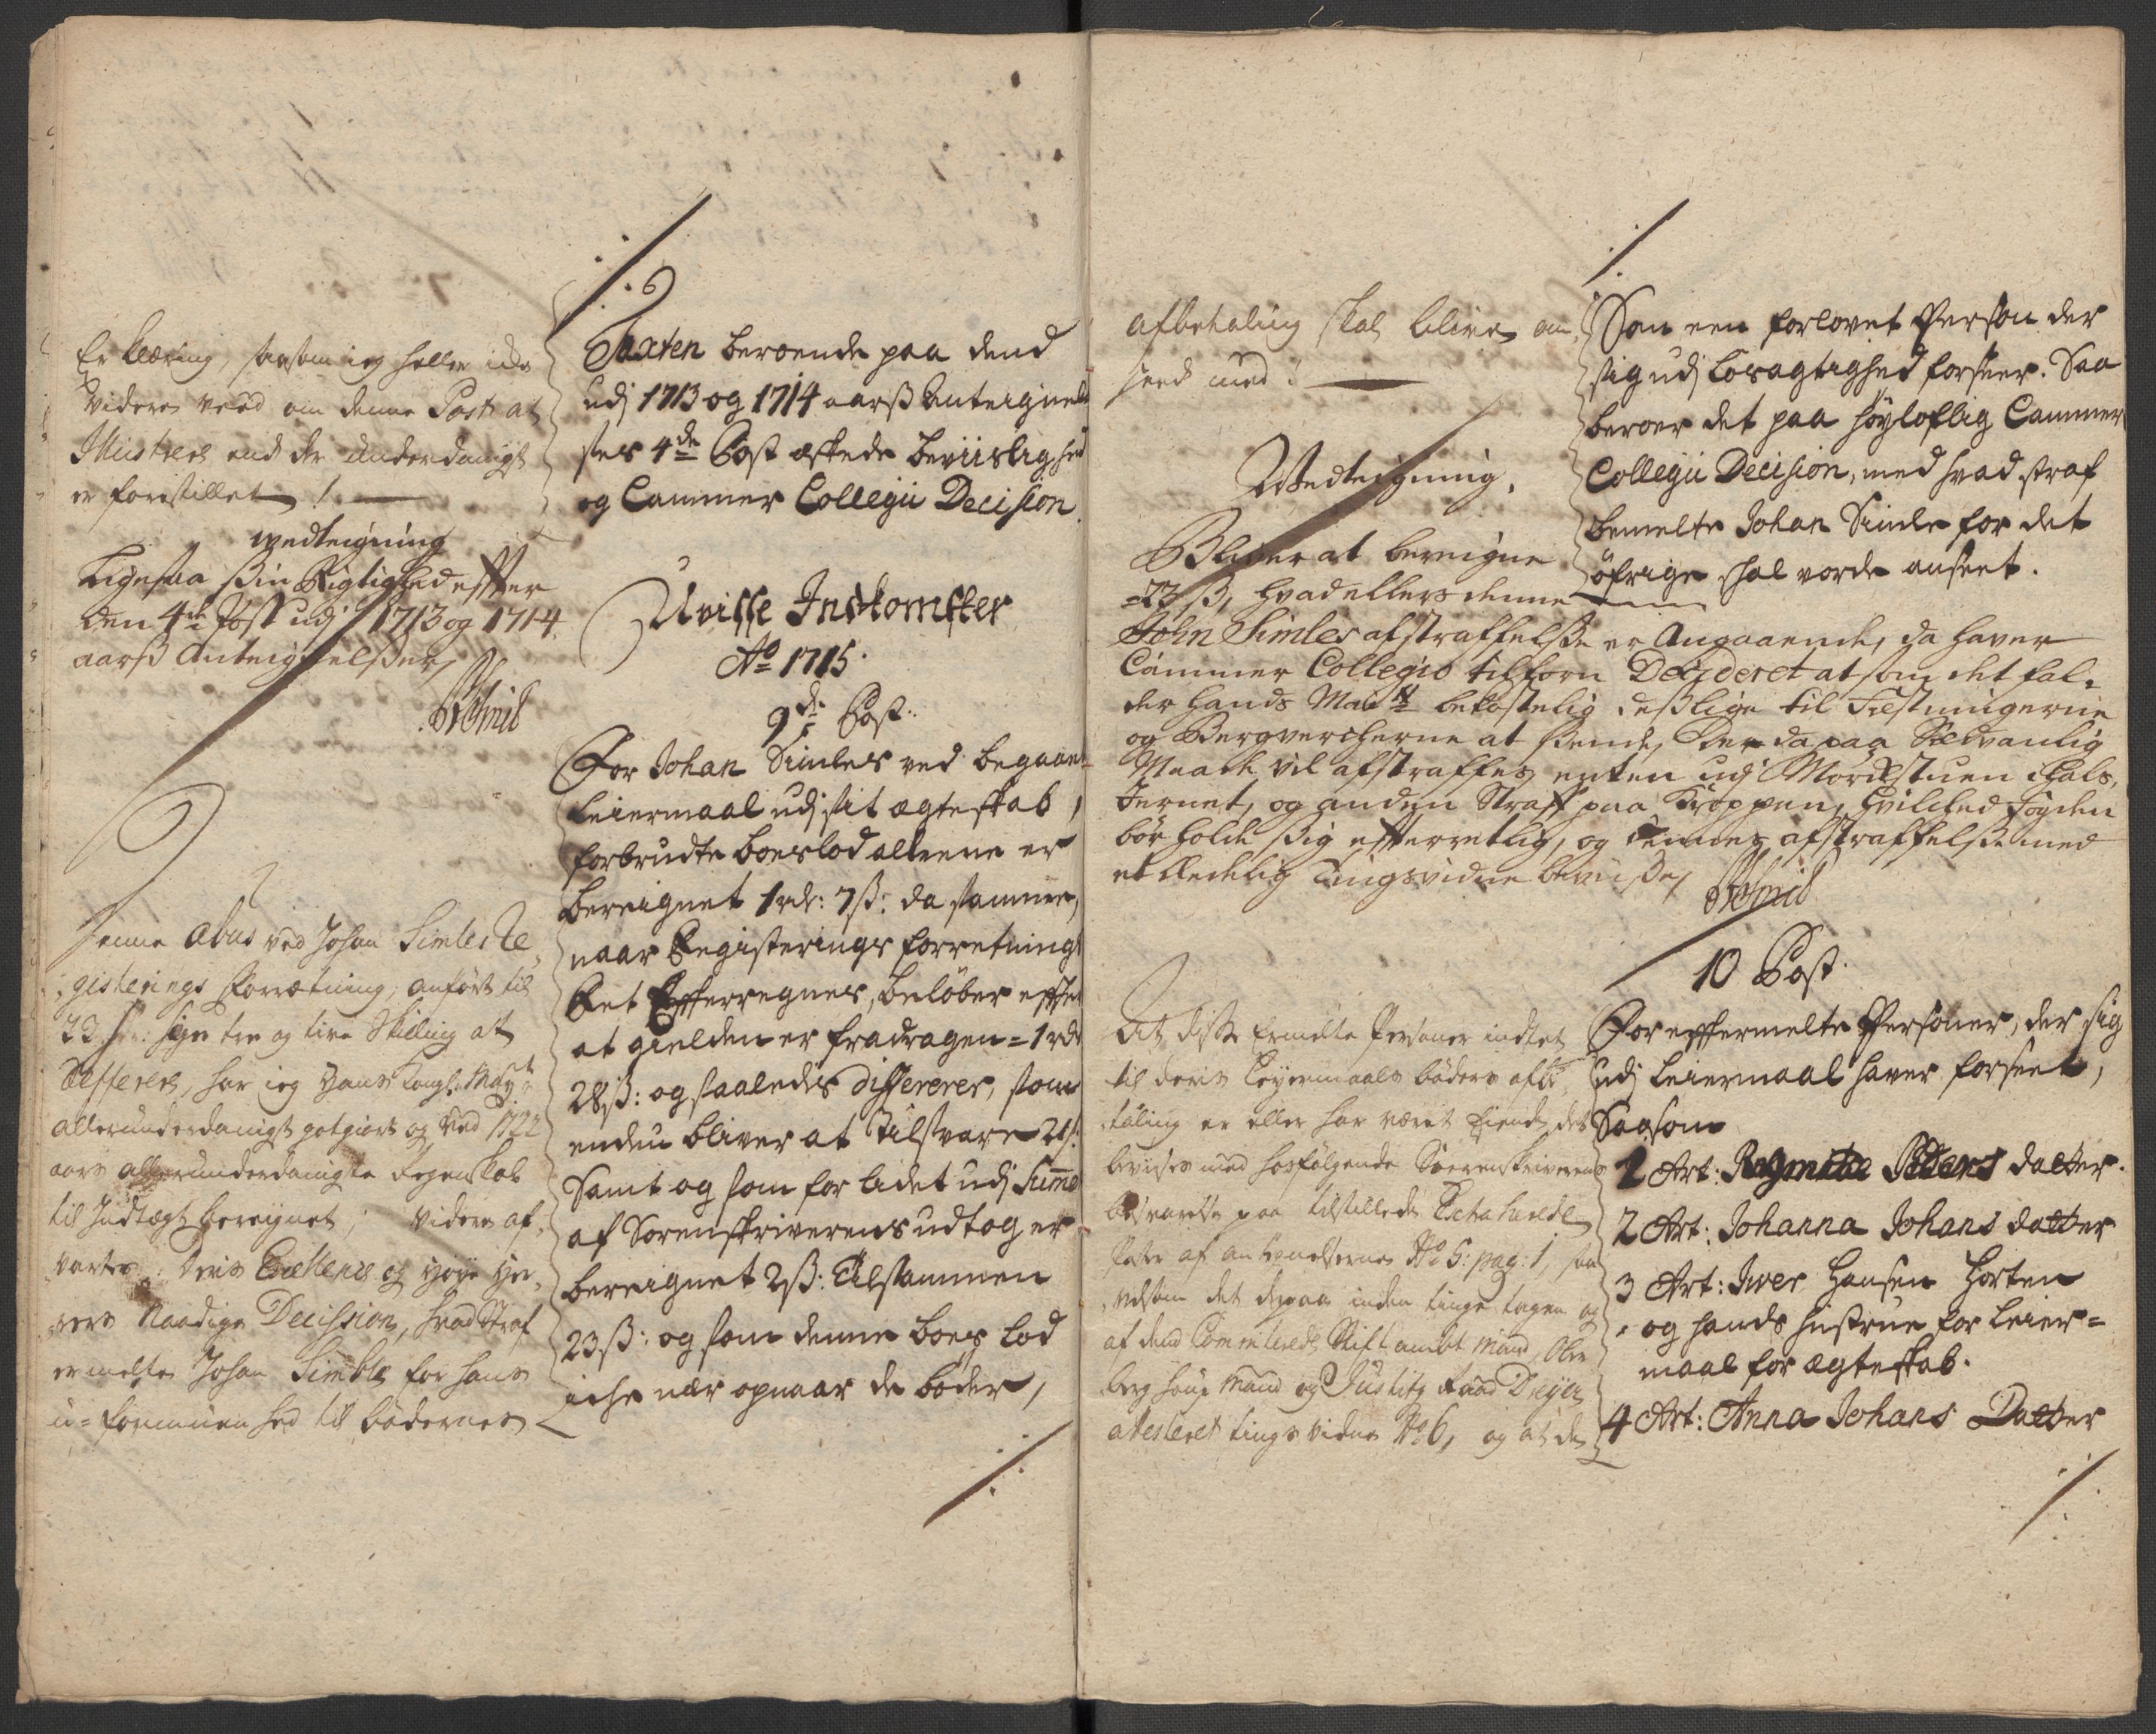 Erklæring, saasom ieg heller icke
videre veed om denne Post at
Illustrere end der underdanigst
er forestillet /.
wedteigning
Ligesaa sin Rigtighed effter
den 4de Post udj 1713 og 1714
aarß Anteignelßer,
Denne Abus ved Johan Simles Re¸
gisterings Forrætning, anført til
23 s: siger tre og tive Skilling at
Differere, har ieg Hans Kongl: Mayst:
allerunderdanigst gotgiort og ved 1722
aars allerunderdanigste Regenskab
til Indtægt bereignet; videre af¸
vartes Deris Excellence og høye Her¸
rers Naadige Decission, hvad Straf
ermelte Johan Simble for hans
u-formuenhed til bødernes
Taxten beroende paa dend
udj 1713 og 1714 aarß Anteignel¸
ses 4de Post æskede beviislighed
og Cammer Collegii Decision
Uvisse Indkomster
Ao 1715.
9de Post.
For Johan Simles ved begaaen
Leiermaal udj sit ægteskab,
forbrudte boeslod alleene er
bereignet 1 rdr: 7 ß: da samme,
naar Registerings forretning
Ret Efferregnes, beløber effter
at gielden er fradragen = 1 rdr
28 ß: og saaledes differerer, som
endnu bliver at tilsvare 21 ß:
Samt og som for lidet udj Summa
af Sorenskriverens udtog er
bereignet 2 ß: Tilsammen
23 ß: og som denne boes lod
iche nær opnaar de bøder,
afbetaling skal blive an¸
seed med:
Wedteigning.
Bliver at bereigne
23 ß, hvad ellers denne
John Simles afstraffelße er Angaaende, da haver
Cammer Collegio tilforn Decideret at som det fal¸
der Hands Maystt bekostelig deßlige til Fæstningerne
og Bergvercherne at ßende, Bør da paa Sedvanlig
Maade vil afstraffes enten udj Mørckstuen, Hals¸
Jernet, og anden Straff paa Kroppen, hvilcked Fogden
bør holde ßig effterretlig, og dennes afstraffelße med
et Lovlig Tingsvidne beviße,
At disse ermelte Personer indtet
til deris Leyermaals bøders afbe¸
taling er eller har været Eiende det
bevises med hosfølgende Sorenskriverens
besvarelse paa tilstillede
Poster af Antegnelserne No 5: pag: 1, saa
velsom det derpaa inden tinge tagen og
af dend Committerede Stiftambtmand, Ober
berg hoved mand og Justitz Raad Dreyer
atesteret tings vidne No 6, og at de
Som een forlovet Person der
sig udj Løsagtighed forseer. Saa
beroer det paa høyloflig Cammer
Collegii Decision, med hvad straf
bemelte Johan Simle for det
øfrige skal vorde anseet.
10 Post.
For effermelte Personer, der sig
udj Leiermaal haver forseet,
Saasom
1 Art: Peders datter.
2 Art: Johanna Johans datter
3 Art: Iver Hansen Horten
og hands hustrue for Leier=
maal for ægteskab.
4 Art: Anna Johans Datter